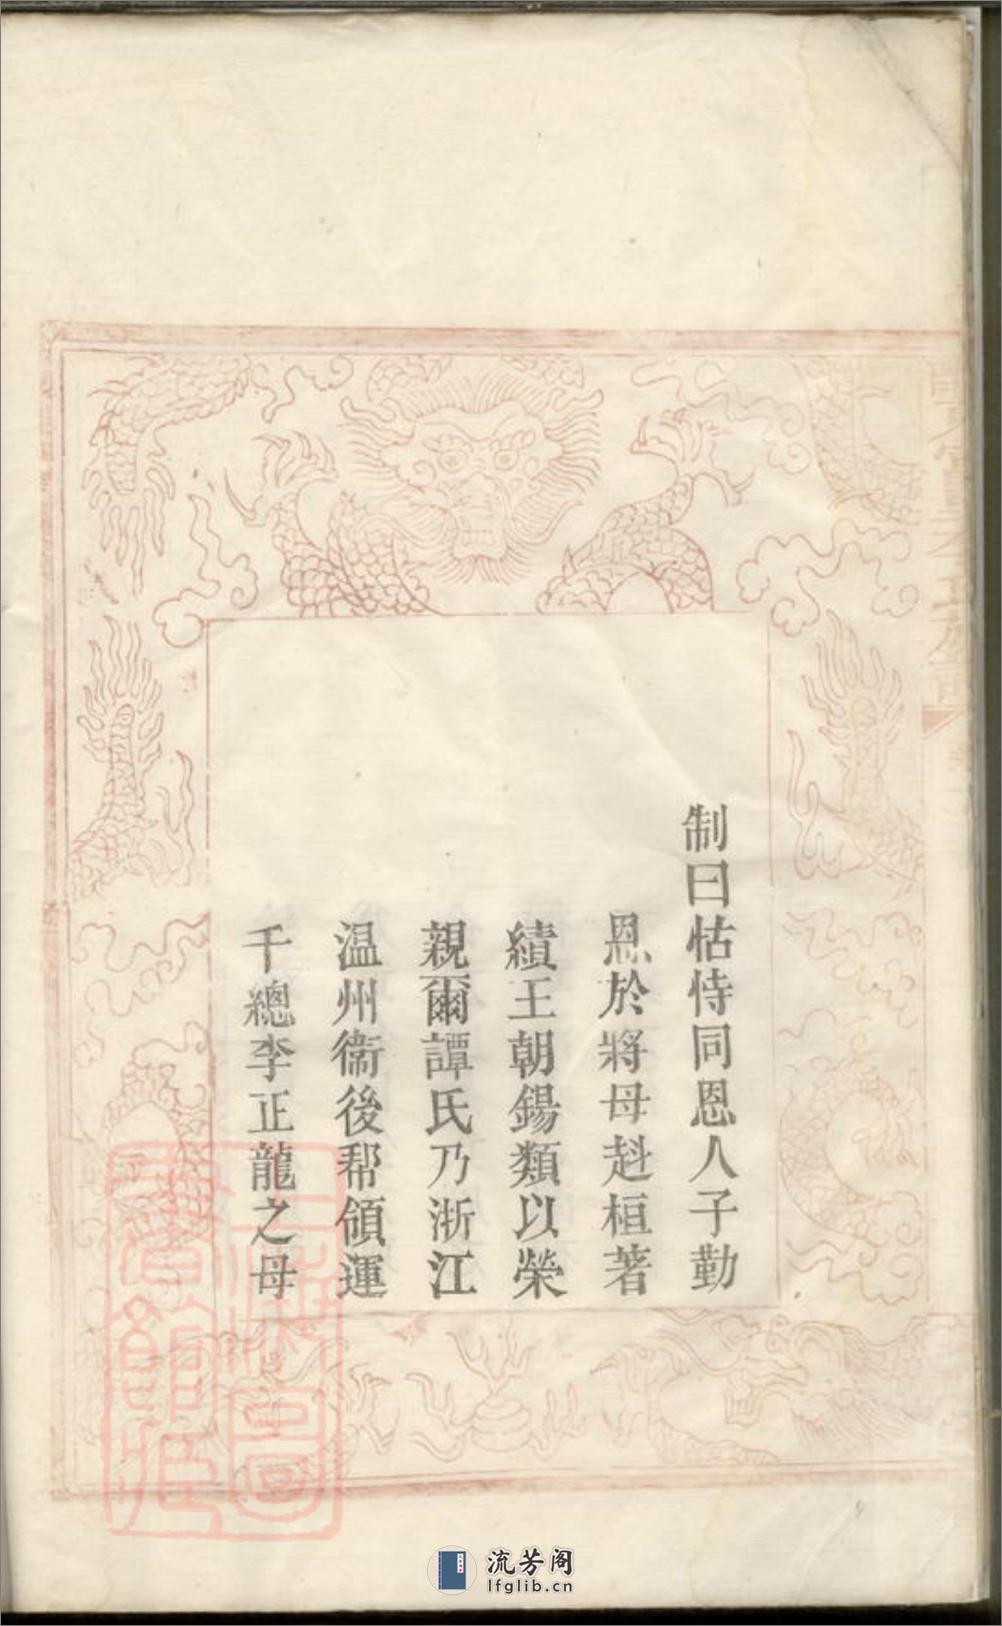 制曰怙恃同恩人子勤
恩於將母赳桓著
績王朝錫類以榮
親爾譚氏乃浙江
温州衞後帮領運
千總李正龍之母
流芳阁
lfglib.cn